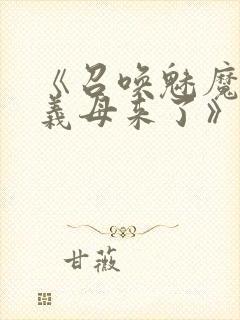 《召唤魅魔
義母来了》
甘薇